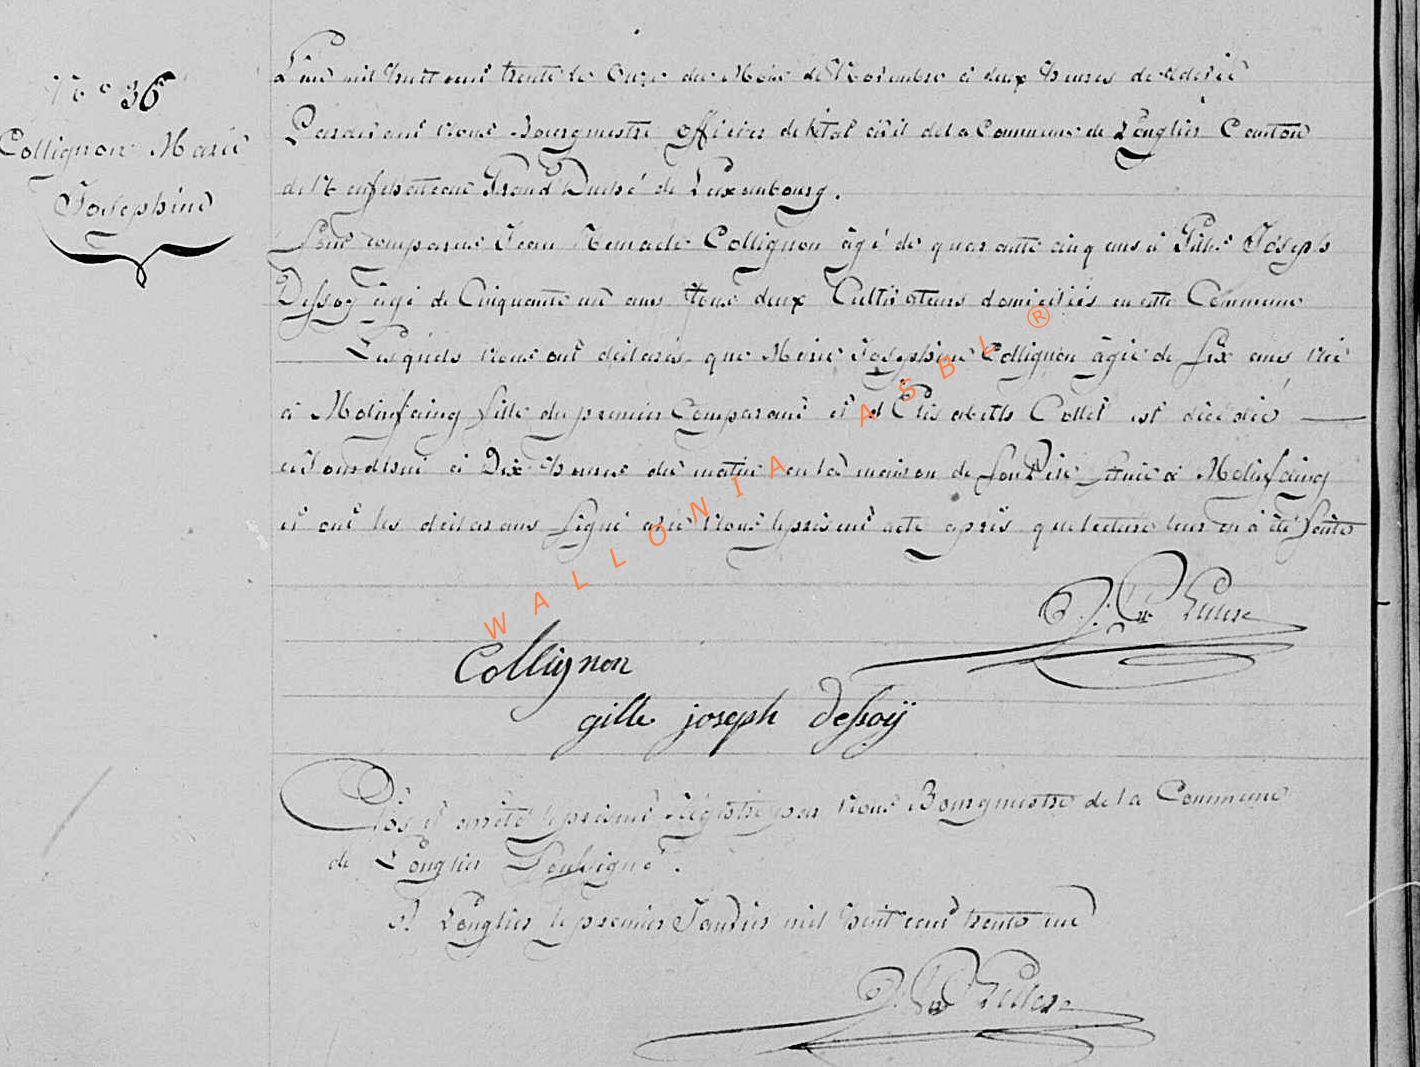 N° 36
Collignon Marie
Josephine
L'an mil huit cent trente le onze du Mois de Novembre à deux heures de relevée
Pardevant Nous Bourgmestre officier de l'état civil de la Commune de Longlier Canton
de Neufchateau Grand Duché de Luxembourg.
Sont comparus Jean Remacle Collignon âgé de quarante cinq ans et Gille Joseph
Dessoy âgé de Cinquante un ans tous deux Cultivateurs domiciliés en cette Commune
Lesquels Nous ont déclarés que Marie Josephine Collignon âgée de six ans née
à Molinfaing fille du premier Comparant et d'Elisabeth Collet est décédée
aujourdhui à Dix heures du matin en la maison de son Père située à Molinfaing
et ont les déclarans signé avec Nous le présent acte après que lecture leur en a été faite
Collignon
gille joseph Dessoÿ
Clos et arrêté le présent Régistre par Nous Bourgmestre de la Commune
de Longlier Soussigné.
A Longlier le premier Janvier mil huit cent trente un
WALLONIA ASBL ®